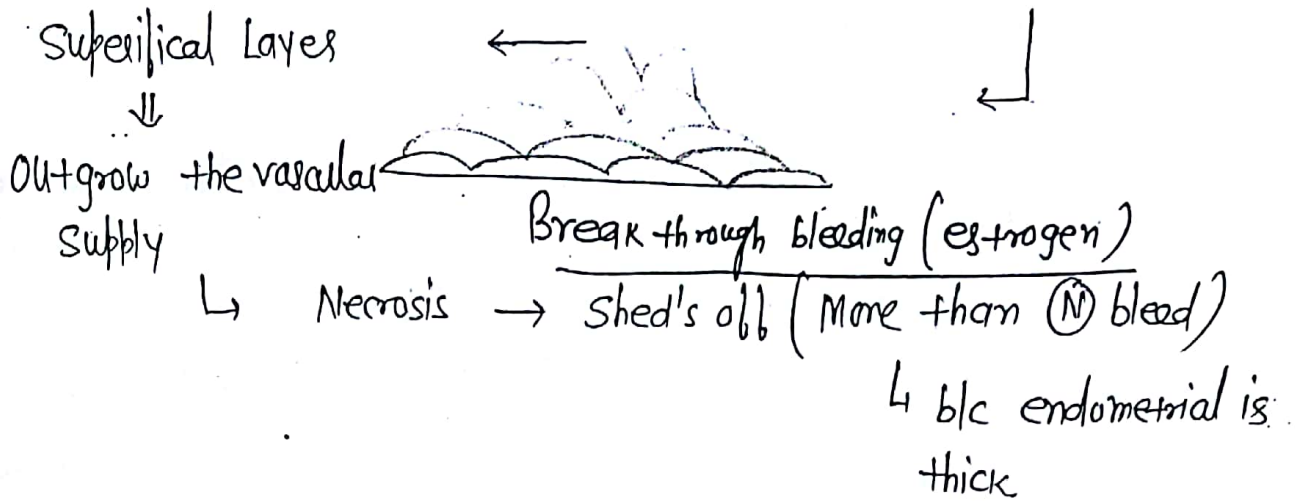 Superifical Layer
⇓
Outgrow the vascular
supply
Break through bleeding (estrogen)
↳ Necrosis → Shed's off (More than Ⓝ bleed)
↳ b/c endometrial is
thick